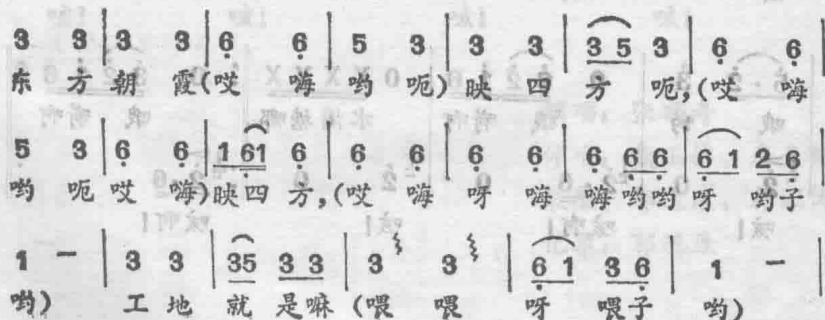 3 3 | 3 3 | 6̣ 6̣ | 5̣ 3 | 3 3 | 3 5 3 | 6̣ 6̣ |
东 方 朝 霞(哎 嗨 哟 呃) 映 四 方 呃,(哎 嗨
5̣ 3 | 6̣ 6̣ | 1 6̣1 6̣ | 6̣ 6̣ | 6̣ 6̣ | 6̣ 6̣ 6̣ | 6̣ 1 2 6̣ |
哟 呃 哎 嗨)映四 方,(哎 嗨 呀 嗨 嗨哟哟 呀 哟子
1 — | 3 3 | 35 3 3 | 3 3 | 6̣ 1 3 6̣ | 1 — |
哟) 工 地 就 是嘛 (喂 喂 呀 喂子 哟)